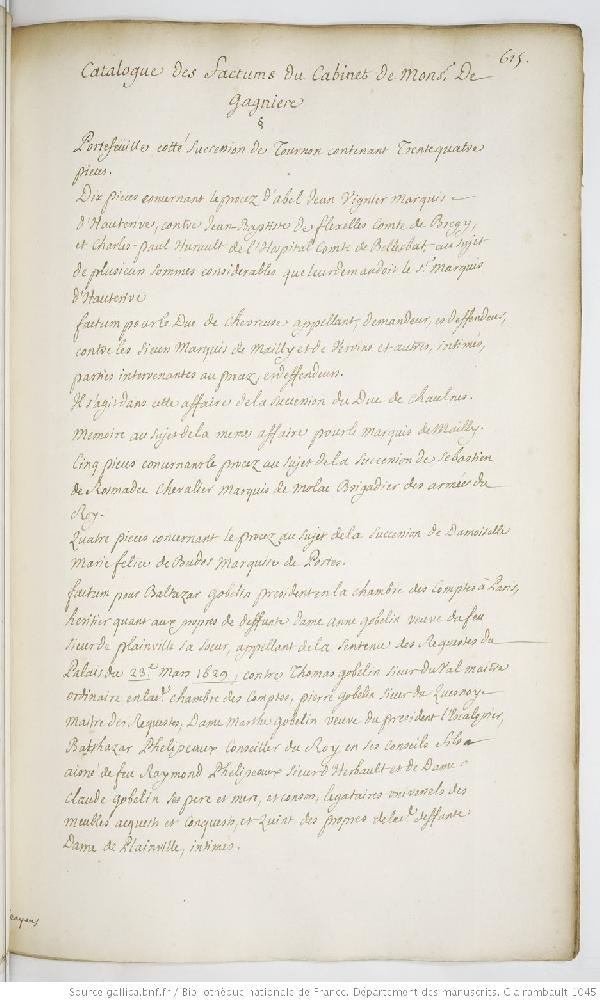 615.
Catalogue des factums du Cabinet de Monsr. De
Gagniere
§
Portefeüille cotté Succession de Tournon contenant Trente quatre
pieces.
Dix pieces concernant le procez d'abel Jean Vignier Marquis
d'Hauterive, contre Jean-Baptiste de flexelles Comte de Bregy,
et Charles-Paul Hurault de l'Hospital Comte de Bellesbat, au sujet
de plusieurs sommes considerables que leur demandoit le Sr. Marquis
d'Hauterive
factum pour le Duc de Chevreuse appellant, demandeur, et deffendeur,
contre les sieurs Marquis de Mailly et de Nervins et autres, intimés,
parties intervenantes au procez, et deffendeurs.
Il s'agit dans cette affaire de la succession du Duc de Chaulnes.
Memoire au sujet de la meme affaire pour le Marquis de Mailly.
Cinq pieces concernant le procez au sujet de la succession de Sebastien
de Rosmadec Chevalier Marquis de Molac Brigadier des armées du
Roy.
Quatre pieces concernant le procez au sujet de la succession de Damoiselle
Marie felice de Budos Marquise de Portes.
factum pour Baltazar gobelin president en la chambre des Comptes à Paris,
heritier quant aux propres de deffunte dame Anne gobelin veuve du feu
sieur de plainville sa soeur, appellant de la sentence des Requestes du
Palais du 23e. Mars 1629, contre Thomas gobelin sieur du Val maitre
ordinaire en lad. chambre des Comptes, pierre gobelin sieur du Quesnoy
maitre des Requestes, Dame Marthe gobelin veuve du president l'Escalopier,
Balthazar Phelipeaux Conseiller du Roy en ses conseils fils
aisné de feu Raymond Phelipeaux sieur d'Herbault et de Dame
Claude gobelin ses pere et mere, et consors, legataires universels des
meubles acquests et conquests, et Quint des propres de lad. deffunte
Dame de Plainville, intimés.
Source gallica.bnf.fr / Bibliothèque nationale de France. Département des manuscrits. Clairambault 1045